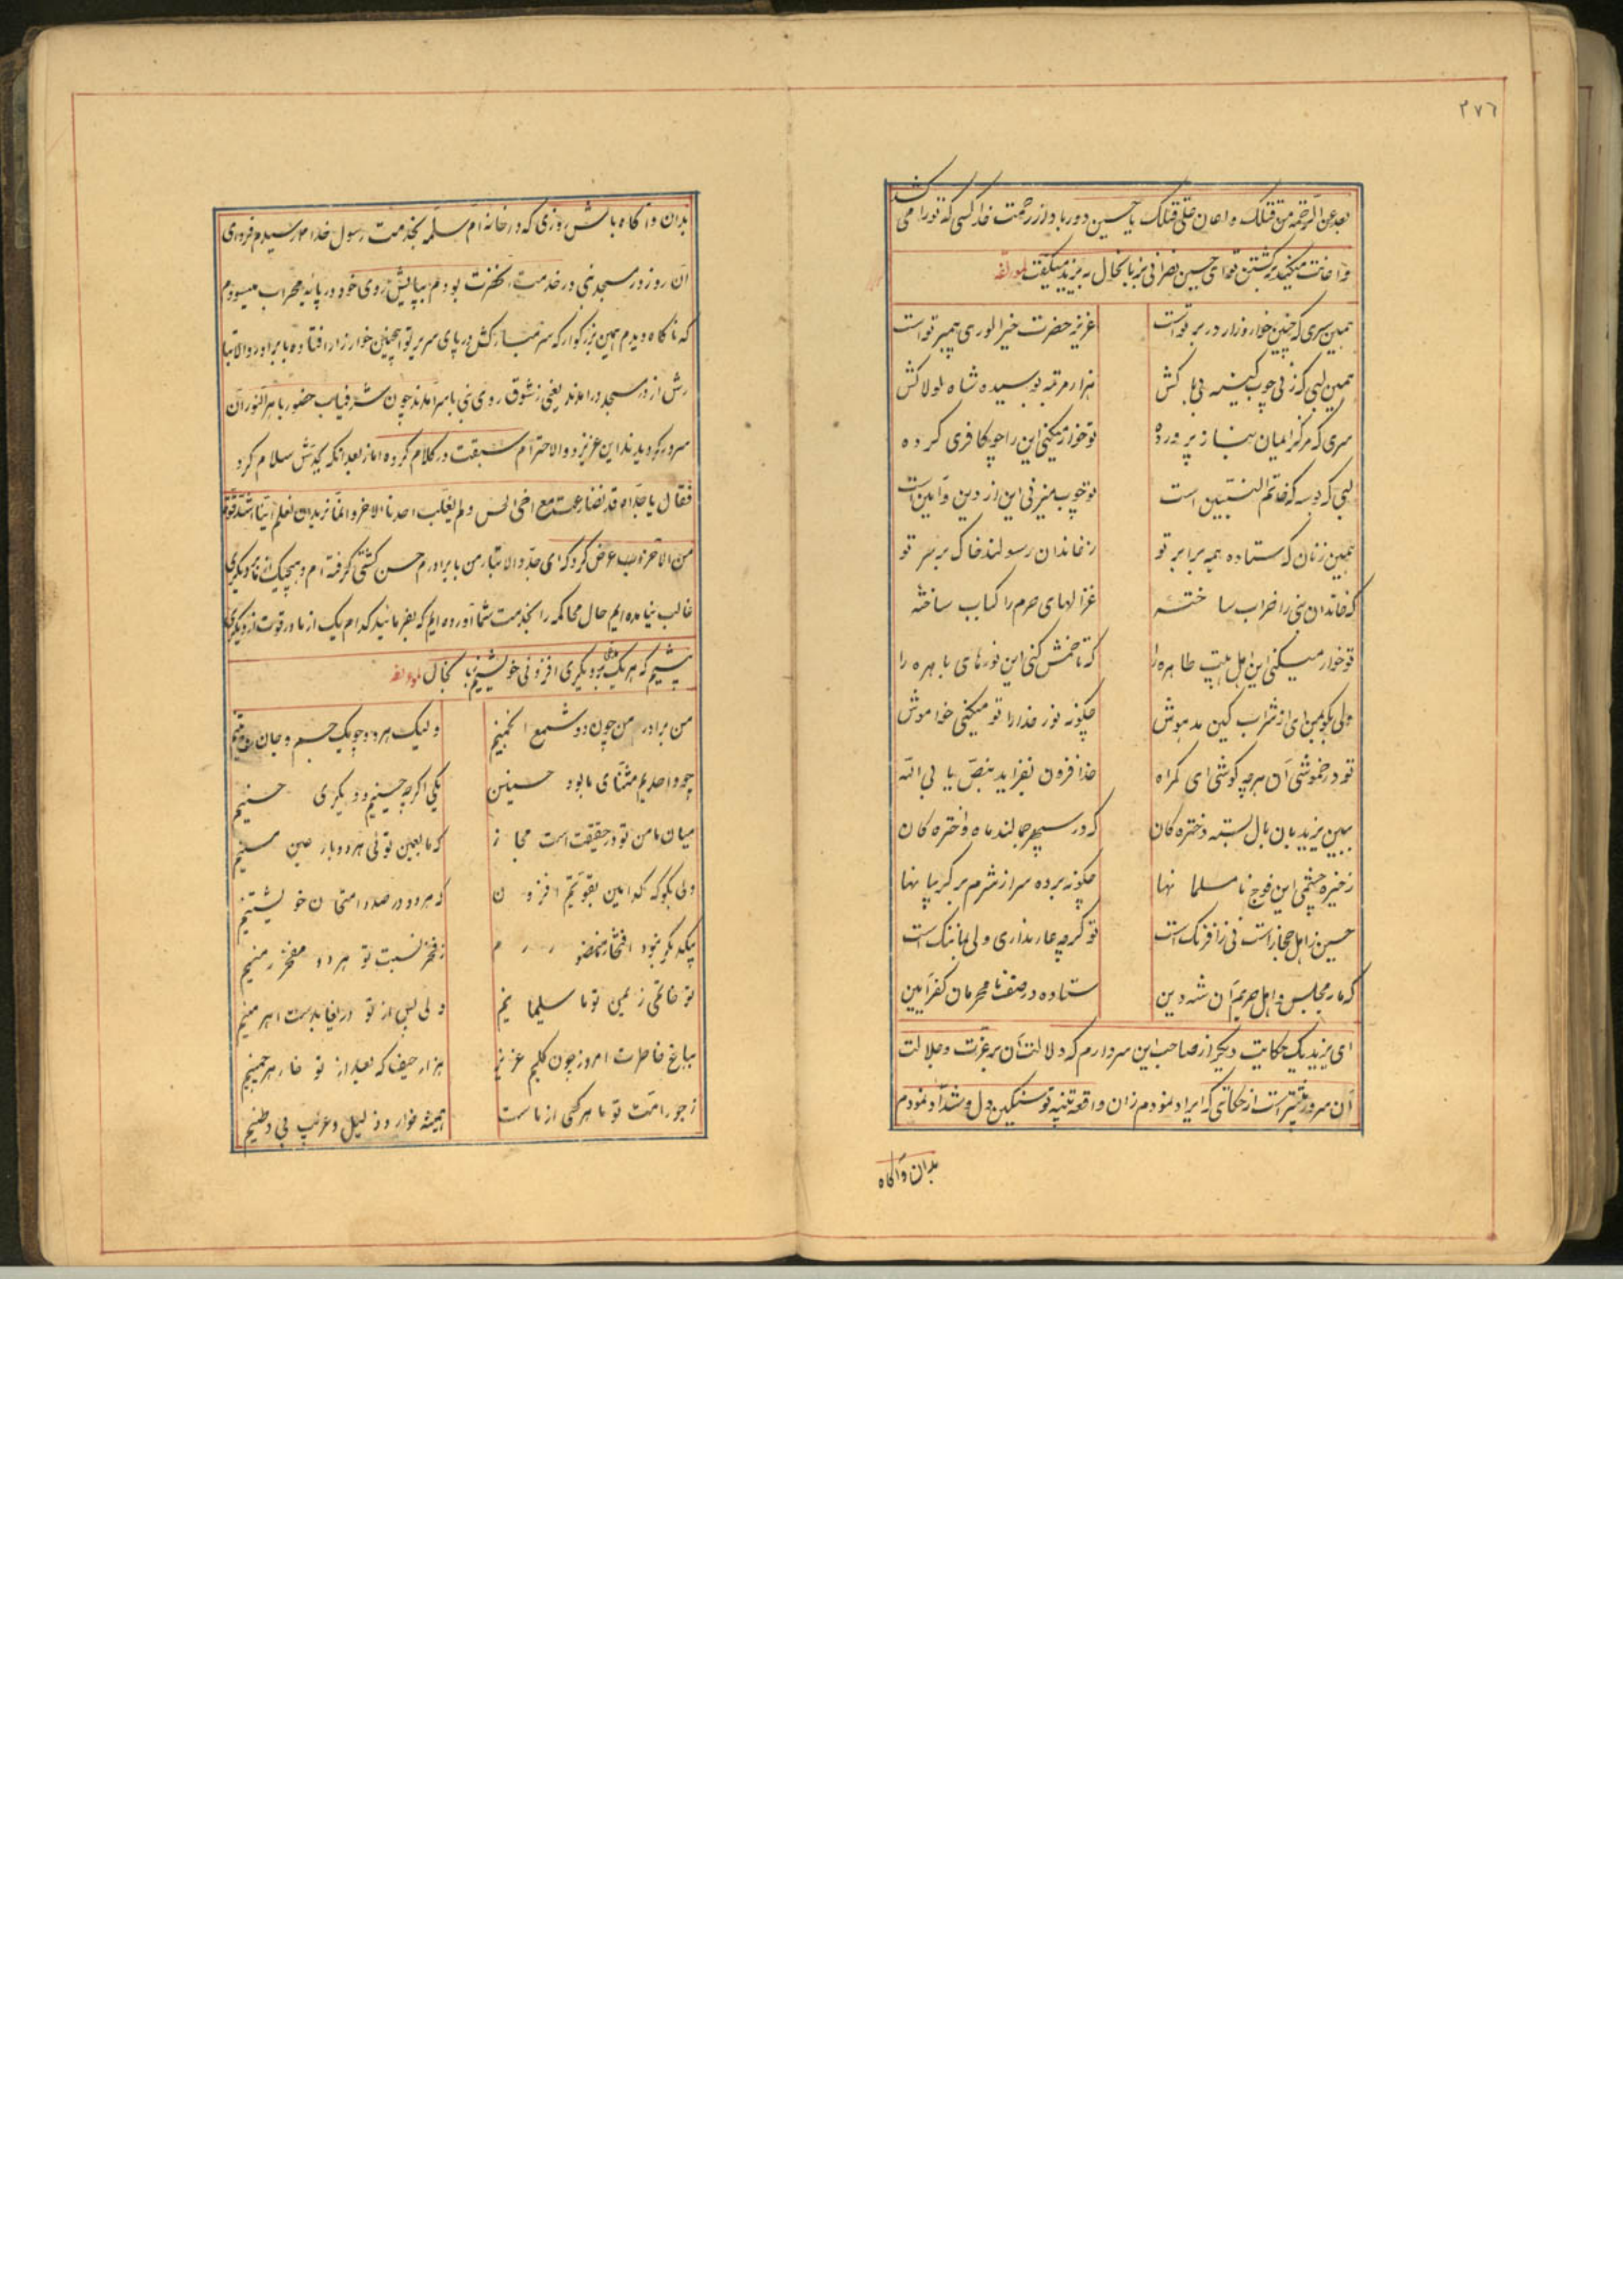 ۲۷۶
بعد عن الرحمة من قتلک و اعان علی قتلک یا حسین دور باد از رحمت خدا کسی که تو را می کشد
و اعانت میکند بر کشتن تو ای حسین نصرانی بزبانحال به یزید میگفت لمؤلفه
همین سری که چنین خوار و زار در بر تو است
عزیز حضرت خیر الوری پیمبر تو است
همین لبی که زنی چوب کینه
هزار مرتبه بوسیده شاه لولاکش
سری که مرکز ایمان بناز پرورده
تو خوار میکنی این را چو کافری کرده
لبی که بوسه که خاتم النبیین است
تو چوب میزنی این از دین و آیین است
همین زنان که ستاده همه برابر تو
ز خاندان رسولند خاک بر سر تو
که خاندان نبی را خراب ساخته
غزالهای حرم را کباب ساخته
تو خوار میکنی این اهل بیت طاهره را
که تا خمش کنی این نورهای باهره را
ولی بگو بمن ای از شراب کین مدهوش
چگونه نور خدا را تو میکنی خواموش
تو در خموشی آن هر چه کوشی ای گمراه
خدا فزون بفزاید بنص یا بی الله
ببین یزید بان بال بسته دختره کان
که در سپهر جمالند ماه و اختره کان
ز خیره چشمی این فوج نا مسلمانها
چگونه برده سر از شرم بر گریبانها
حسین ز اهل حجاز است نی ز افرنگ است
تو گرچه عار نداری ولی بما ننگ است
که ما بمجلس و اهل حریم آن شه دین
ستاده در صف نا محرمان کفر آیین
ای یزید یک حکایت دیگر از صاحب این سر دارم که دلالت آن بر عزت و جلالت
آن سرور بیشتر است از حکایتی که ایراد نمودم زان واقعه تنبیه تو سنگین دل و شداد نمودم
بدان و آگاه
بدان و آگاه باش روزی که در خانه ام سلمه بخدمت رسول خدا رسیدم فردای
آن روز در مسجد نبی در خدمت آنحضرت بودم بپایش روی خود در پایه محراب میسودم
که ناگاه دیدم همین بزرگوار که سر مبارکش در پای سریر تو اینچنین خوار و زار افتاده با برادر والا تبا
رش از در مسجد در آمدند یعنی ز شوق روی نبی با سر آمدند چون شرفیاب حضور باهر النور آن
سرور گردیدند این عزیز ذو الاحترام سبقت در کلام کرده اما از بعد انکه بجدش سلام کرد
فقال یا جداه قد تصارعت مع اخی الحسن و لم یغلب احدنا الاخر و انما نرید ان نعلم اینا اشد قوة
من الاخر پس عرض کرد که ای جد والا تبار من با برادرم حسن کشتی گرفته ام و هیچیک از ما بر دیگری
غالب نیامده ایم حال محاکمه را بخدمت شما آورده ایم که بفرمائید کدام یک از ما در قوت از دیگری
بیشیم که هر یک مدعی بر دیگری افزونی خویشیم بزبانحال لمؤلفه
من برادر من چون دو شمع انجمنیم
ولیک هر دو چو یک جسم و جان
چو واحدیم مثنای ما بود حسنین
یکی اگر چه حسینیم و دیگری حسنیم
میان ما من تو در حقیقت است مجاز
که ما بعین تو نی هر دو بار عین منیم
ولی بگو که کدامین بقوتیم افزون
که هر دو در صدد امتحان خویشتنیم
ز فخر نسبت تو هر دو مفخر زمنیم
تو خاتمی ز یمین تو ما سلیمانیم
ولی پس از تو دریغا بدست اهرمنیم
بباغ خاطرت امروز چون گلیم عزیز
هزار حیف که بعد از تو خار هر چمنیم
ز جور امت تو ما هر کسی از ماست
همیشه خوار و ذلیل و غریب و بی وطنیم